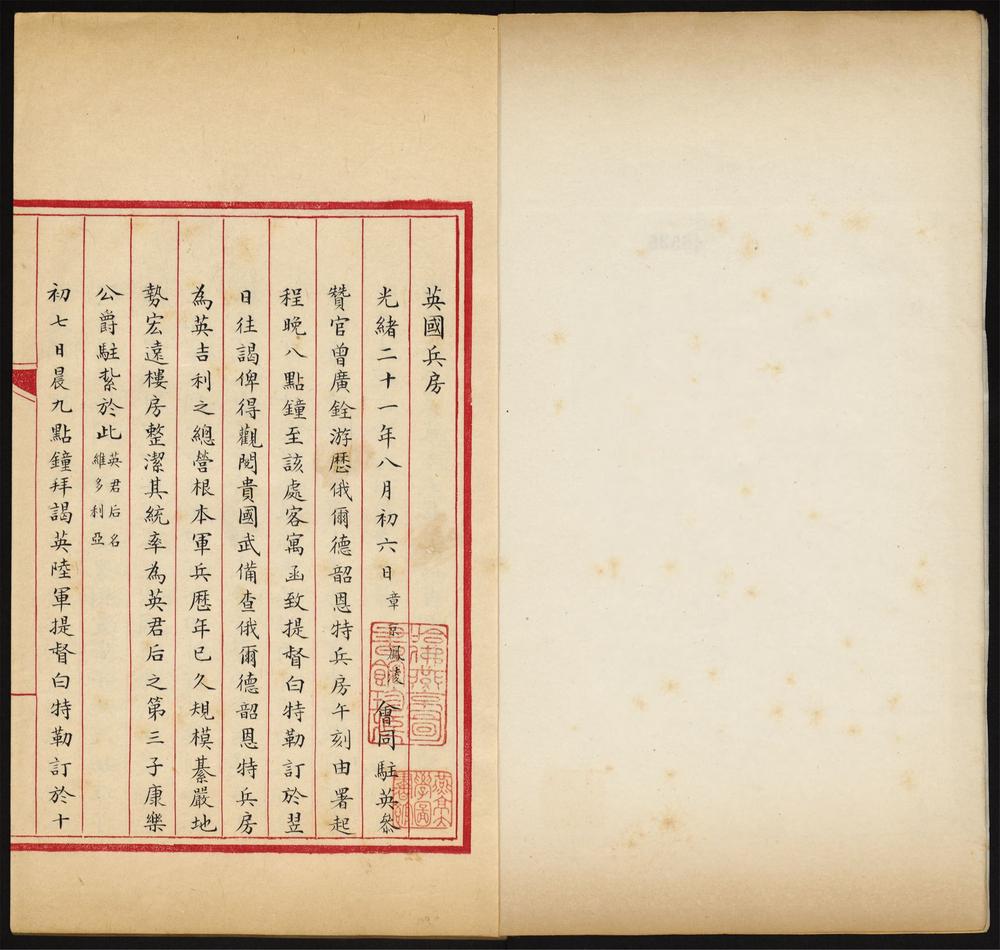 英國兵房
光緒二十一年八月初六日章京鳳淩會同駐英參
贊官曾廣銓游歷俄爾德韶恩特兵房午刻由署起
程晚八點鐘至該處客寓函致提督白特勒訂於翌
日往謁俾得觀閱貴國武備查俄爾德韶恩特兵房
為英吉利之總營根本軍兵歷年已久規模綦嚴地
勢宏遠樓房整潔其統率為英君后之第三子康樂
公爵駐紮於此英君后名維多利亞
初七日晨九點鐘拜謁英陸軍提督白特勒訂於十
哈佛燕京圖書館珍藏